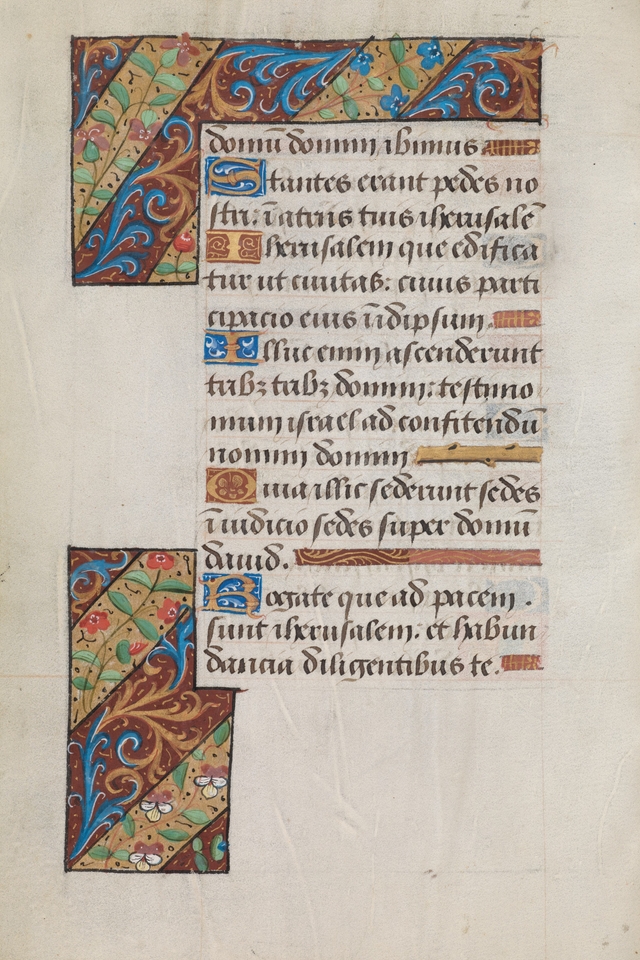 domū domini ibimus
Stantes erant pedes no
stri: ī atriis tuis iherusalē
Iherusalem que edifica
tur ut ciuitas: cuius parti
cipacio eius ī idipsum.
Illuc enim ascenderunt
tribꝫ tribꝫ domini: testimo
nium israel ad confitendū
nomini domini
Quia illic sederunt sedes
ī iudicio sedes super domū
dauid.
Rogate que ad pacem .
sunt iherusalem: et habun
dancia diligentibus te.